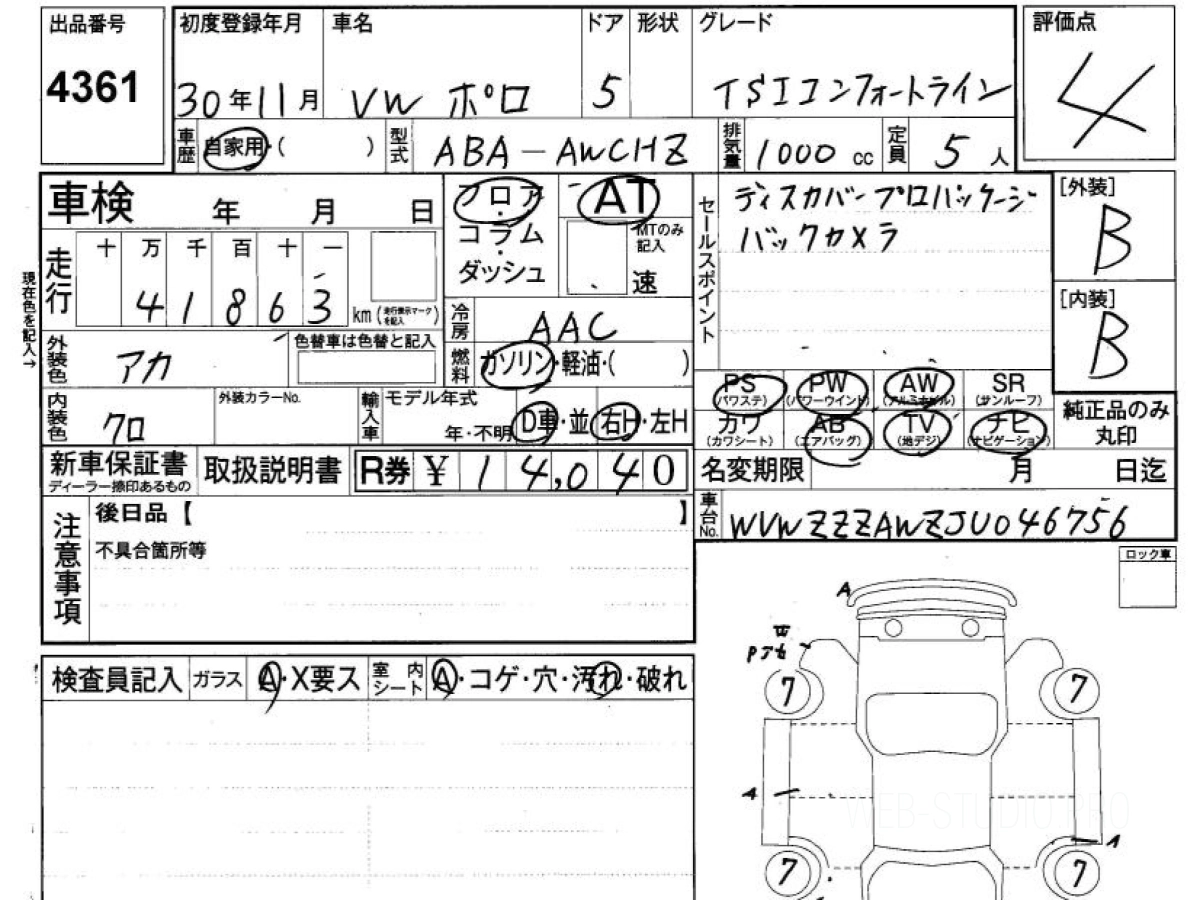 出品番号
4361
初度登録年月
30年11月
車名
VW ポロ
ドア
5
形状
グレード
TSIコンフォートライン
評価点
4
車歴
自家用・( )
型式
ABA-AWCHZ
排気量
1000 cc
定員
5 人
車検 年 月 日
走行
十 万 千 百 十 一
4 1 8 6 3
km(走行表示マークを記入)
現在色を記入→
外装色
アカ
色替車は色替と記入
内装色
クロ
外装カラーNo.
フロア
・
コラム
・
ダッシュ
AT
MTのみ
記入
速
冷房
AAC
燃料
ガソリン・軽油・( )
輸入車
モデル年式
年・不明
D車・並
右H・左H
セールスポイント
ディスカバープロパッケージ
バックカメラ
[外装]
B
[内装]
B
PS
(パワステ)
PW
(パワーウインド)
AW
(アルミホイル)
SR
(サンルーフ)
カワ
(カワシート)
AB
(エアバッグ)
TV
(地デジ)
ナビ
(ナビゲーション)
純正品のみ
丸印
新車保証書
ディーラー捺印あるもの
取扱説明書
R券 ¥ 14,040
名変期限 月 日迄
車台No.
WVWZZZAWZJU046756
注意事項
後日品【 】
不具合箇所等
ロック車
検査員記入
ガラス
A・X要ス
室内
シート
A・コゲ・穴・汚れ・破れ
A
Pアカ
7
7
A
A
7
7
WEB-STUDIO.PRO